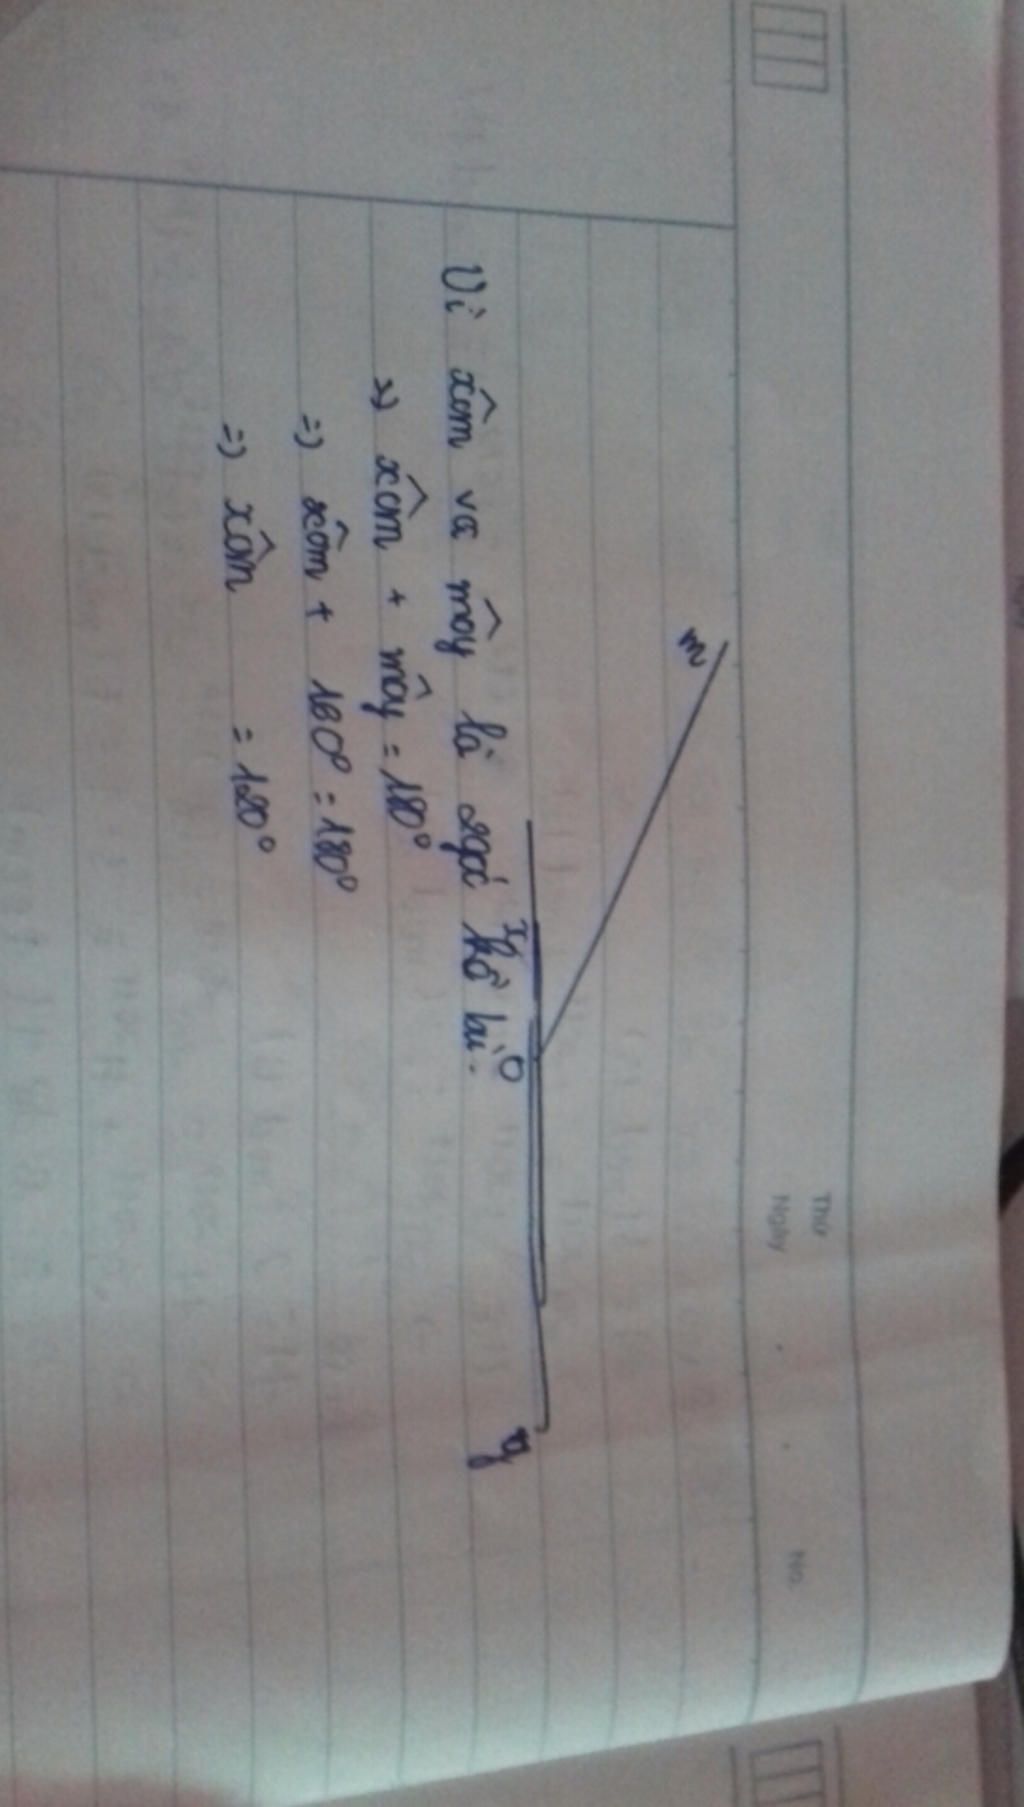 Thứ
Ngày
No.
m
O
y
Vì xÔm va mÔy là 2góc kề bù.
=> xÔm + mÔy = 180°
=> xÔm + 160° = 180°
=> xÔm = 120°